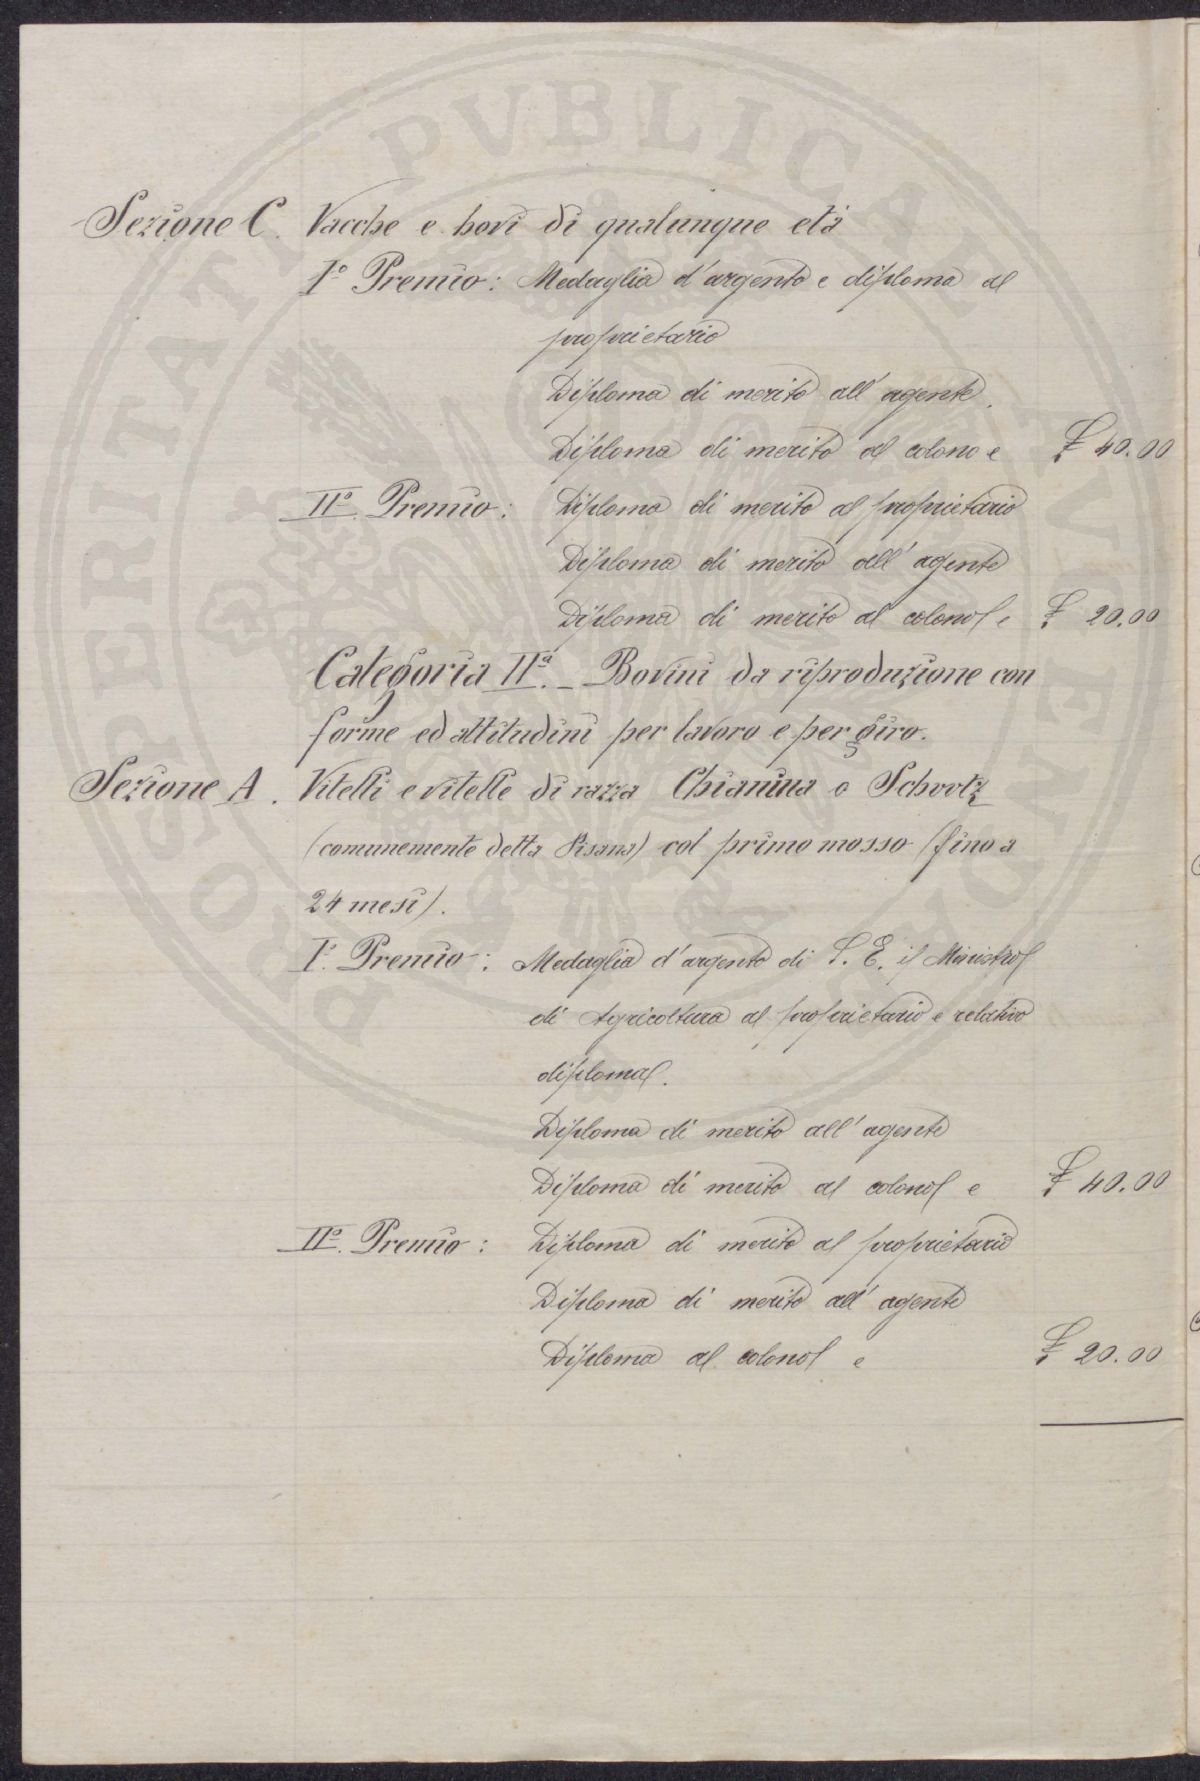 Sezione C. Vacche e bovi di qualunque età
I.o Premio: Medaglia d'argento e diploma al
proprietario
Diploma di merito all'agente.
Diploma di merito al colono e £ 40.00
II.o Premio: Diploma di merito al proprietario
Diploma di merito all'agente
Diploma di merito al colono e £ 20.00
Categoria II.a - Bovini da riproduzione con
forme ed attitudini per lavoro e per giro.
Sezione A. Vitelli e vitelle di razza Chianina o Schwtz
(comunemente detta Pisana) col primo mosso (fino a
24 mesi).
I. Premio: Medaglia d'argento di S. E. il Ministro
di Agricoltura al proprietario e relativo
diploma.
Diploma di merito all'agente
Diploma di merito al colono e £ 40.00
II.o Premio: Diploma di merito al proprietario
Diploma di merito all'agente
Diploma al colono e £ 20.00